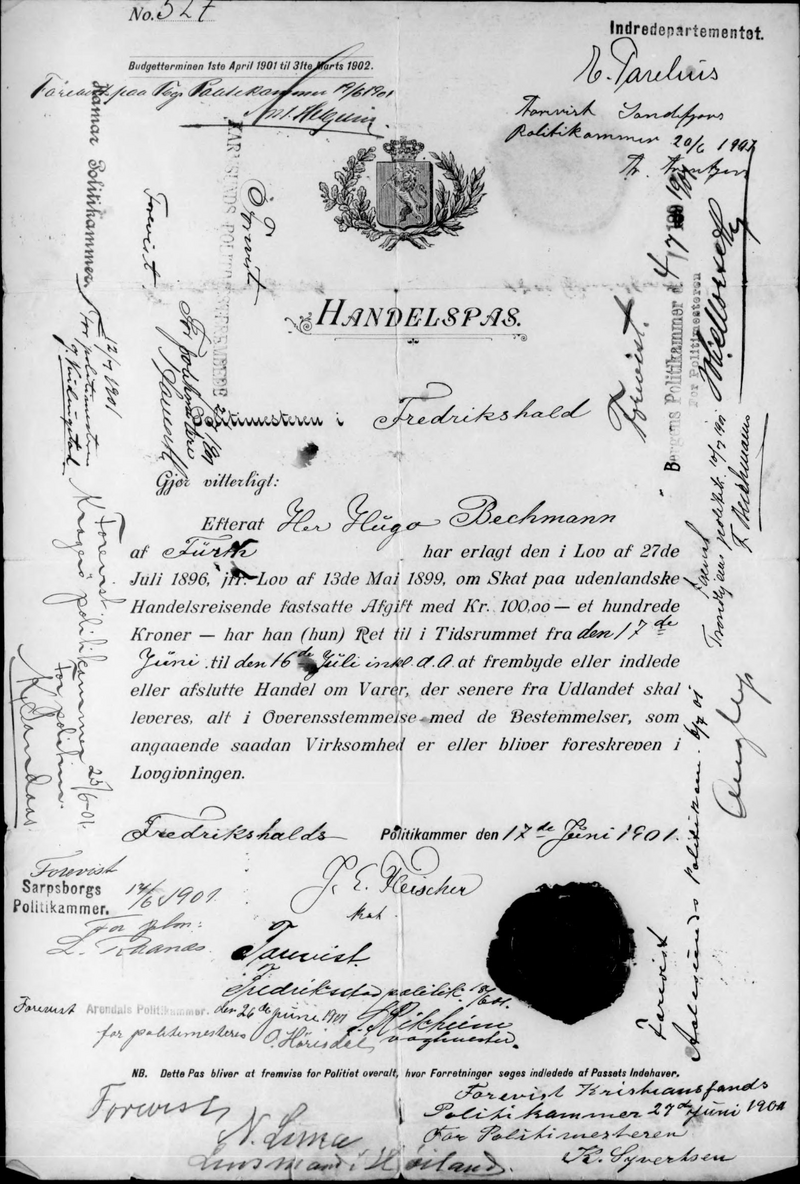 No. 527
Indredepartementet.
Budgetterminen 1ste April 1901 til 31te Marts 1902.
Forevist paa Politikammer 19/6 1901
Forevist Sandefjords
Politikammer 20/6 1901
HANDELSPAS.
Politimesteren i Fredrikshald
Gjør vitterligt:
Efterat Her Hugo Bechmann
af Fürth har erlagt den i Lov af 27de
Juli 1896, jfr. Lov af 13de Mai 1899, om Skat paa udenlandske
Handelsreisende fastsatte Afgift med Kr. 100,00 — et hundrede
Kroner — har han (hun) Ret til i Tidsrummet fra den 17de
Juni til den 16de Juli inkl. d. A. at frembyde eller indlede
eller afslutte Handel om Varer, der senere fra Udlandet skal
leveres, alt i Overensstemmelse med de Bestemmelser, som
angaaende saadan Virksomhed er eller bliver foreskreven i
Lovgivningen.
Fredrikshalds Politikammer den 17de Juni 1901.
J. E. Fleischer
Forevist
Sarpsborgs
Politikammer.
1901
Forevist
Fredrikstad politik.
Forevist Arendals Politikammer. den 26de Juni 1901
for politimesteren
NB. Dette Pas bliver at fremvise for Politiet overalt, hvor Forretninger søges indledede af Passets Indehaver.
Forevist Kristiansands
Politikammer 27de Juni 1901
For Politimesteren
K. Syvertsen
Forevist
Lensmand i Høiland.
Hamar Politikammer 12/7 1901
For politimesteren
Forevist.
Forevist
For politimesteren
Forevist
Kragerø politikammer 25/6 01.
For politim.
Forevist.
Bergens Politikammer d. 4/7 1901
For Politimesteren
Forevist
Trondhjems politik. 10/7 1901
F. Bechmann
Forevist
Aalesunds Politikam. 6/7 01